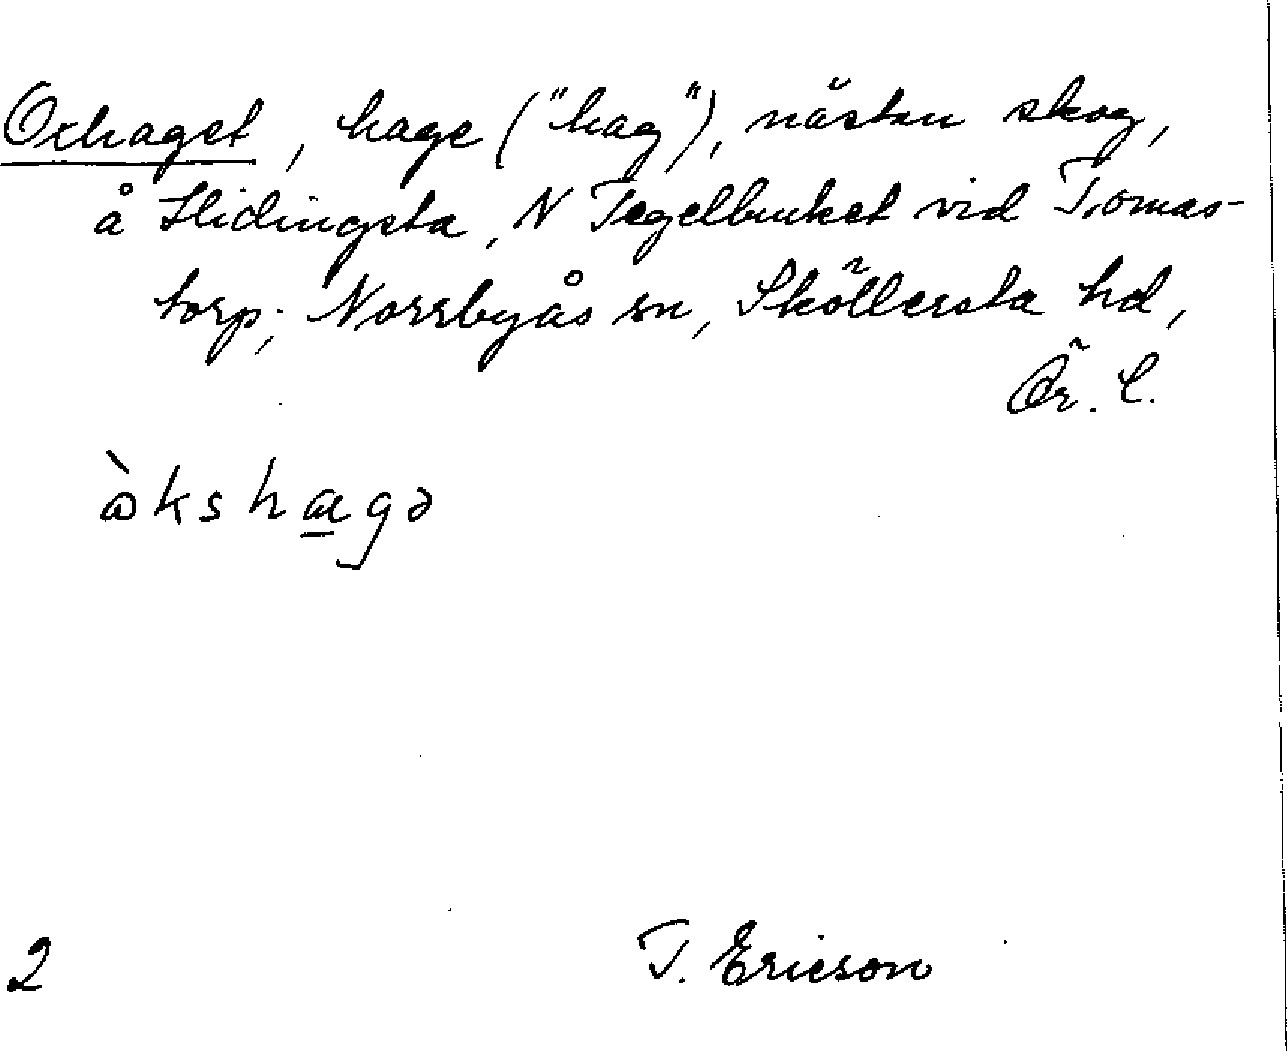 Oxhaget, hage ("hag"), nästan skog,
å Hidingsta, N Tegelbruket vid Tomas-
torp; Norrbyås sn, Sköllersta hd,
Ör. l.
ὼkshagə
2 T. Ericson